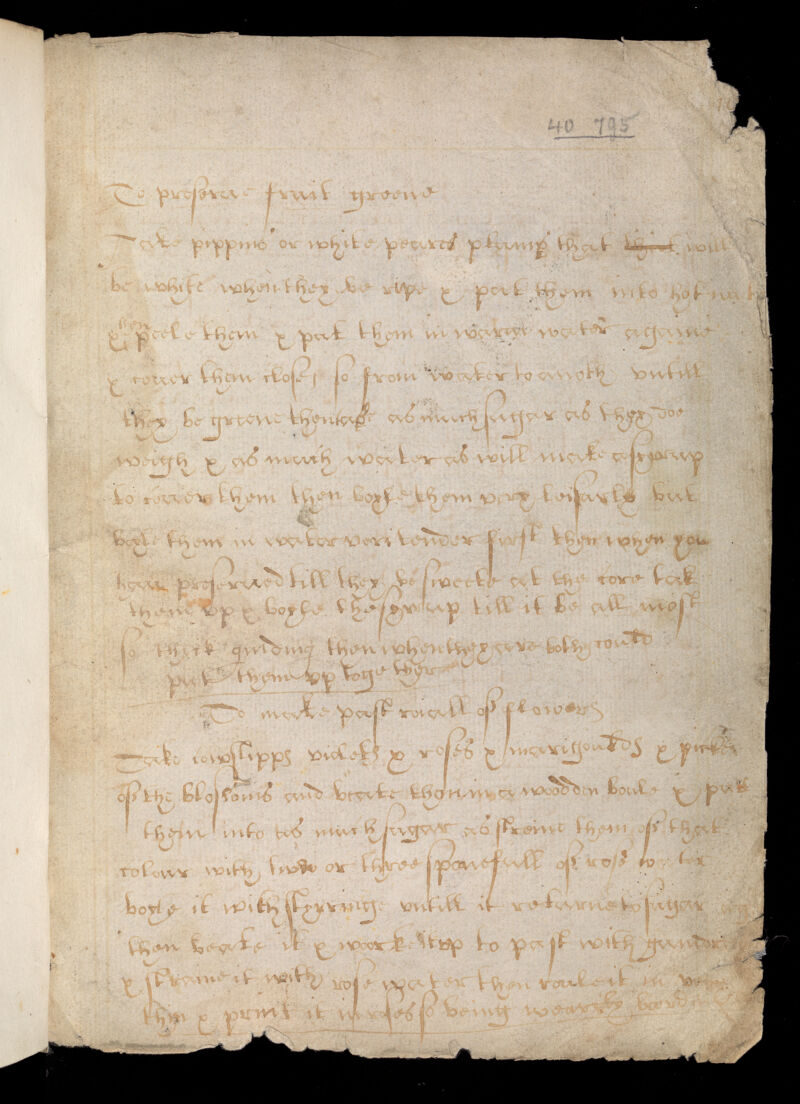 40 795
To preserve fruit greene
Take pippins or white peares plumps that will
be white when they be ripe & put them into hot
& then peele them & put them in warm water againe
& cover them close, so from water to anoth untill
they be greene then take as much sugar as they doe
weigh & as much water as will make a syrup
to cover them then boyle them very leisurly but
boyle them in water veri tender first then when you
have preserved till they be sweete at the core tak
them up & boyle the syrup till it be all most
so thick then when they are both could
put them up together
To make past riall of flowers
Take cowslipps violets & roses & marigoulds & picke
of the blossoms and beate them in a wooden boule & put
them into as much sugar as streine them of that
colour with two or three sponefull of rose water
boyle it with styrringe untill it returne to sugar
then beate it & worke it up to past with
& straine it with rose water then roule it in
thin & print it in roses so being